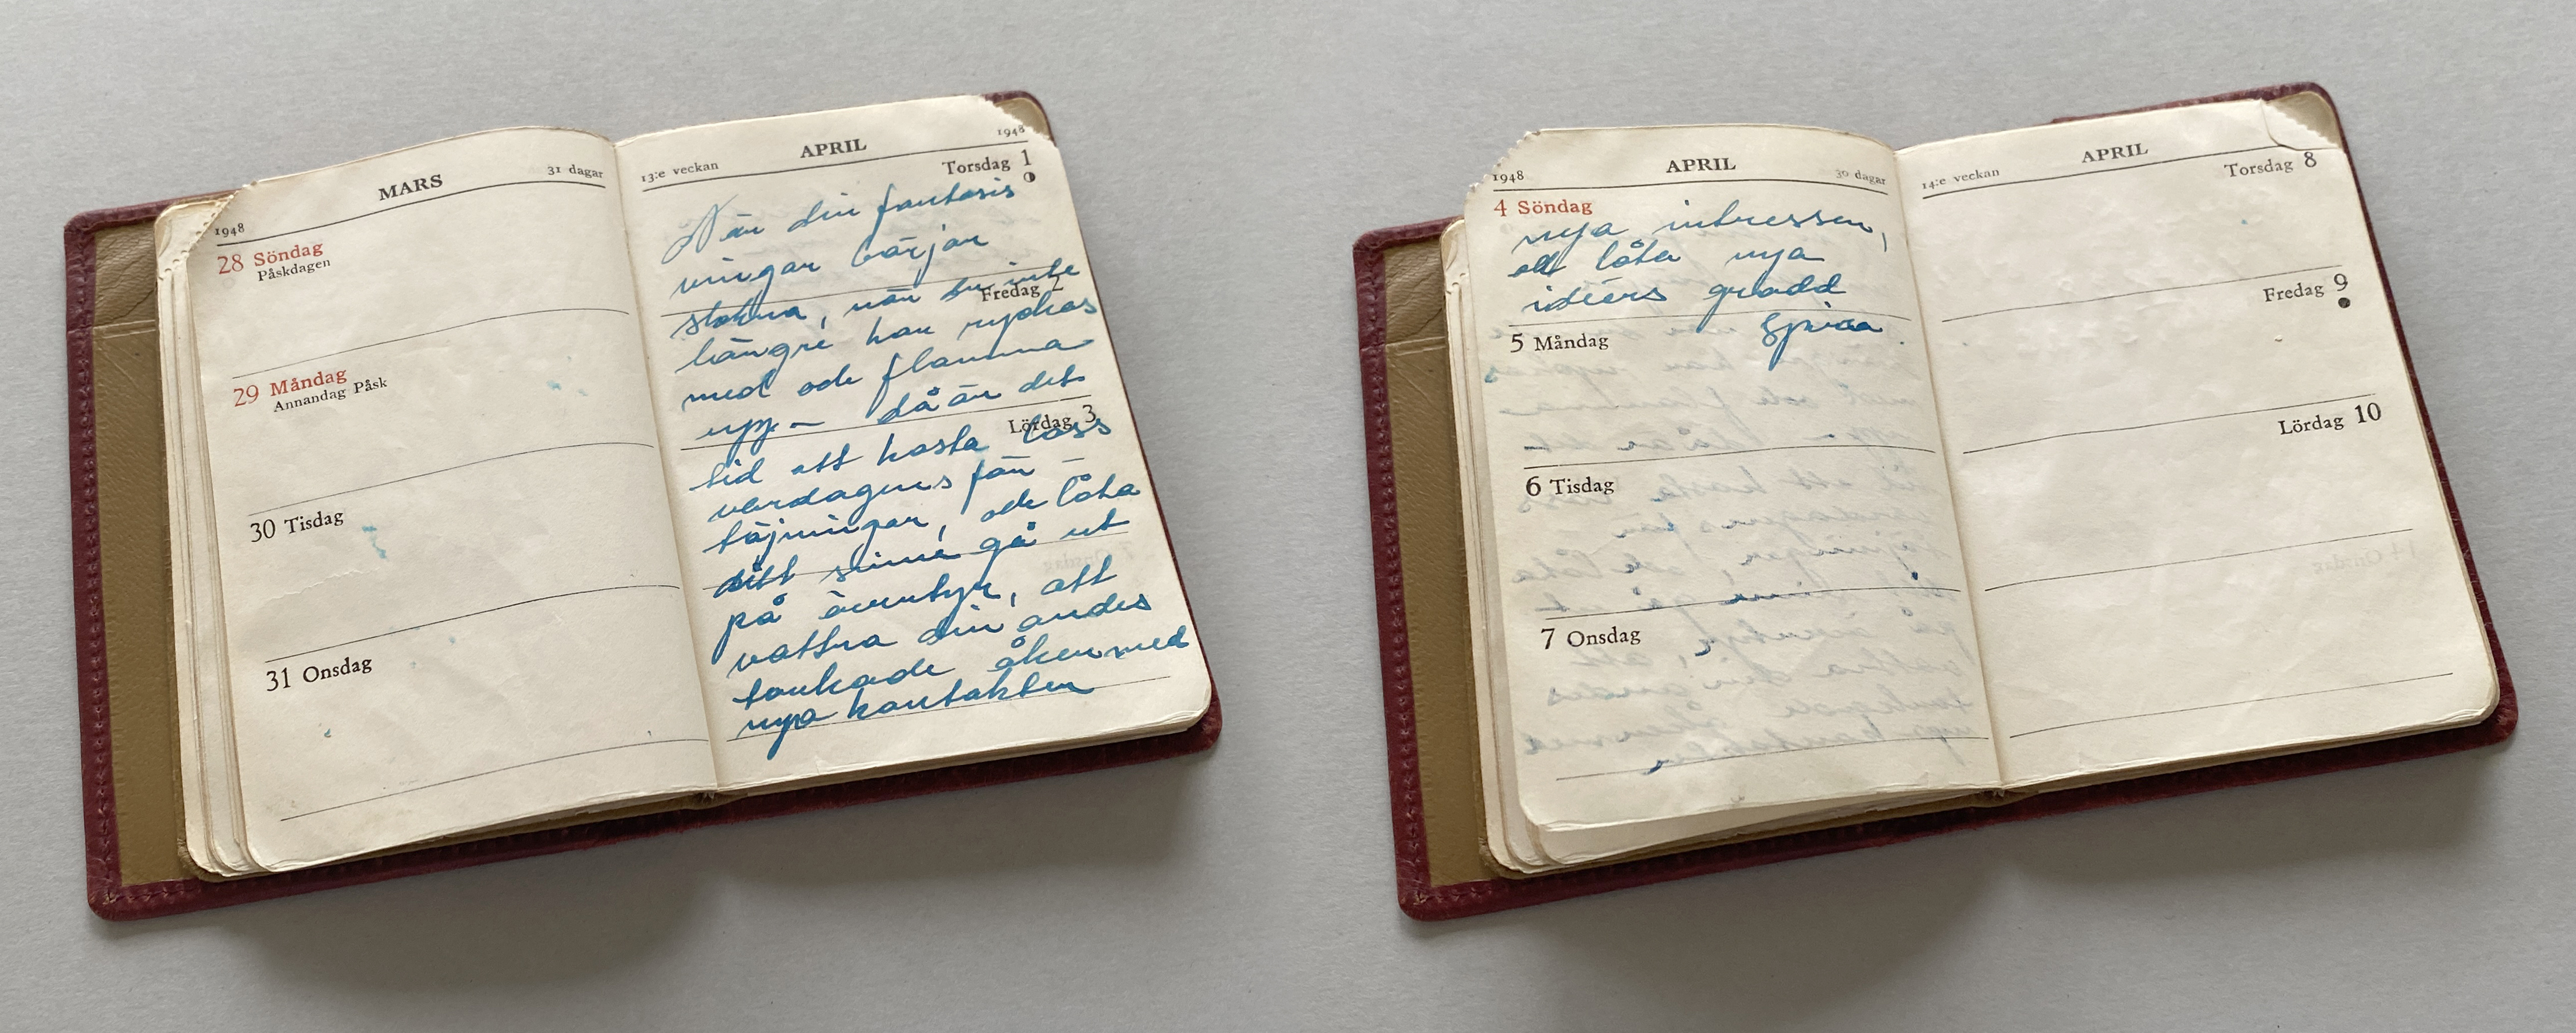 1948 MARS 31 dagar
28 Söndag
Påskdagen
29 Måndag
Annandag Påsk
30 Tisdag
31 Onsdag
13:e veckan APRIL 1948
Torsdag 1
När din fantasis
vingar börjar
Fredag 2
slakna, när du inte
längre kan ryckas
med och flamma
upp – då är det
Lördag 3
tid att kasta loss
vardagens för-
töjningar, och låta
ditt sinne gå ut
på äventyr, att
vattna din andes
torkade öken med
nya kontakter
1948 APRIL 30 dagar
4 Söndag
nya intressen,
att låta nya
idéers grodd
spira
5 Måndag
6 Tisdag
7 Onsdag
14:e veckan APRIL
Torsdag 8
Fredag 9
Lördag 10